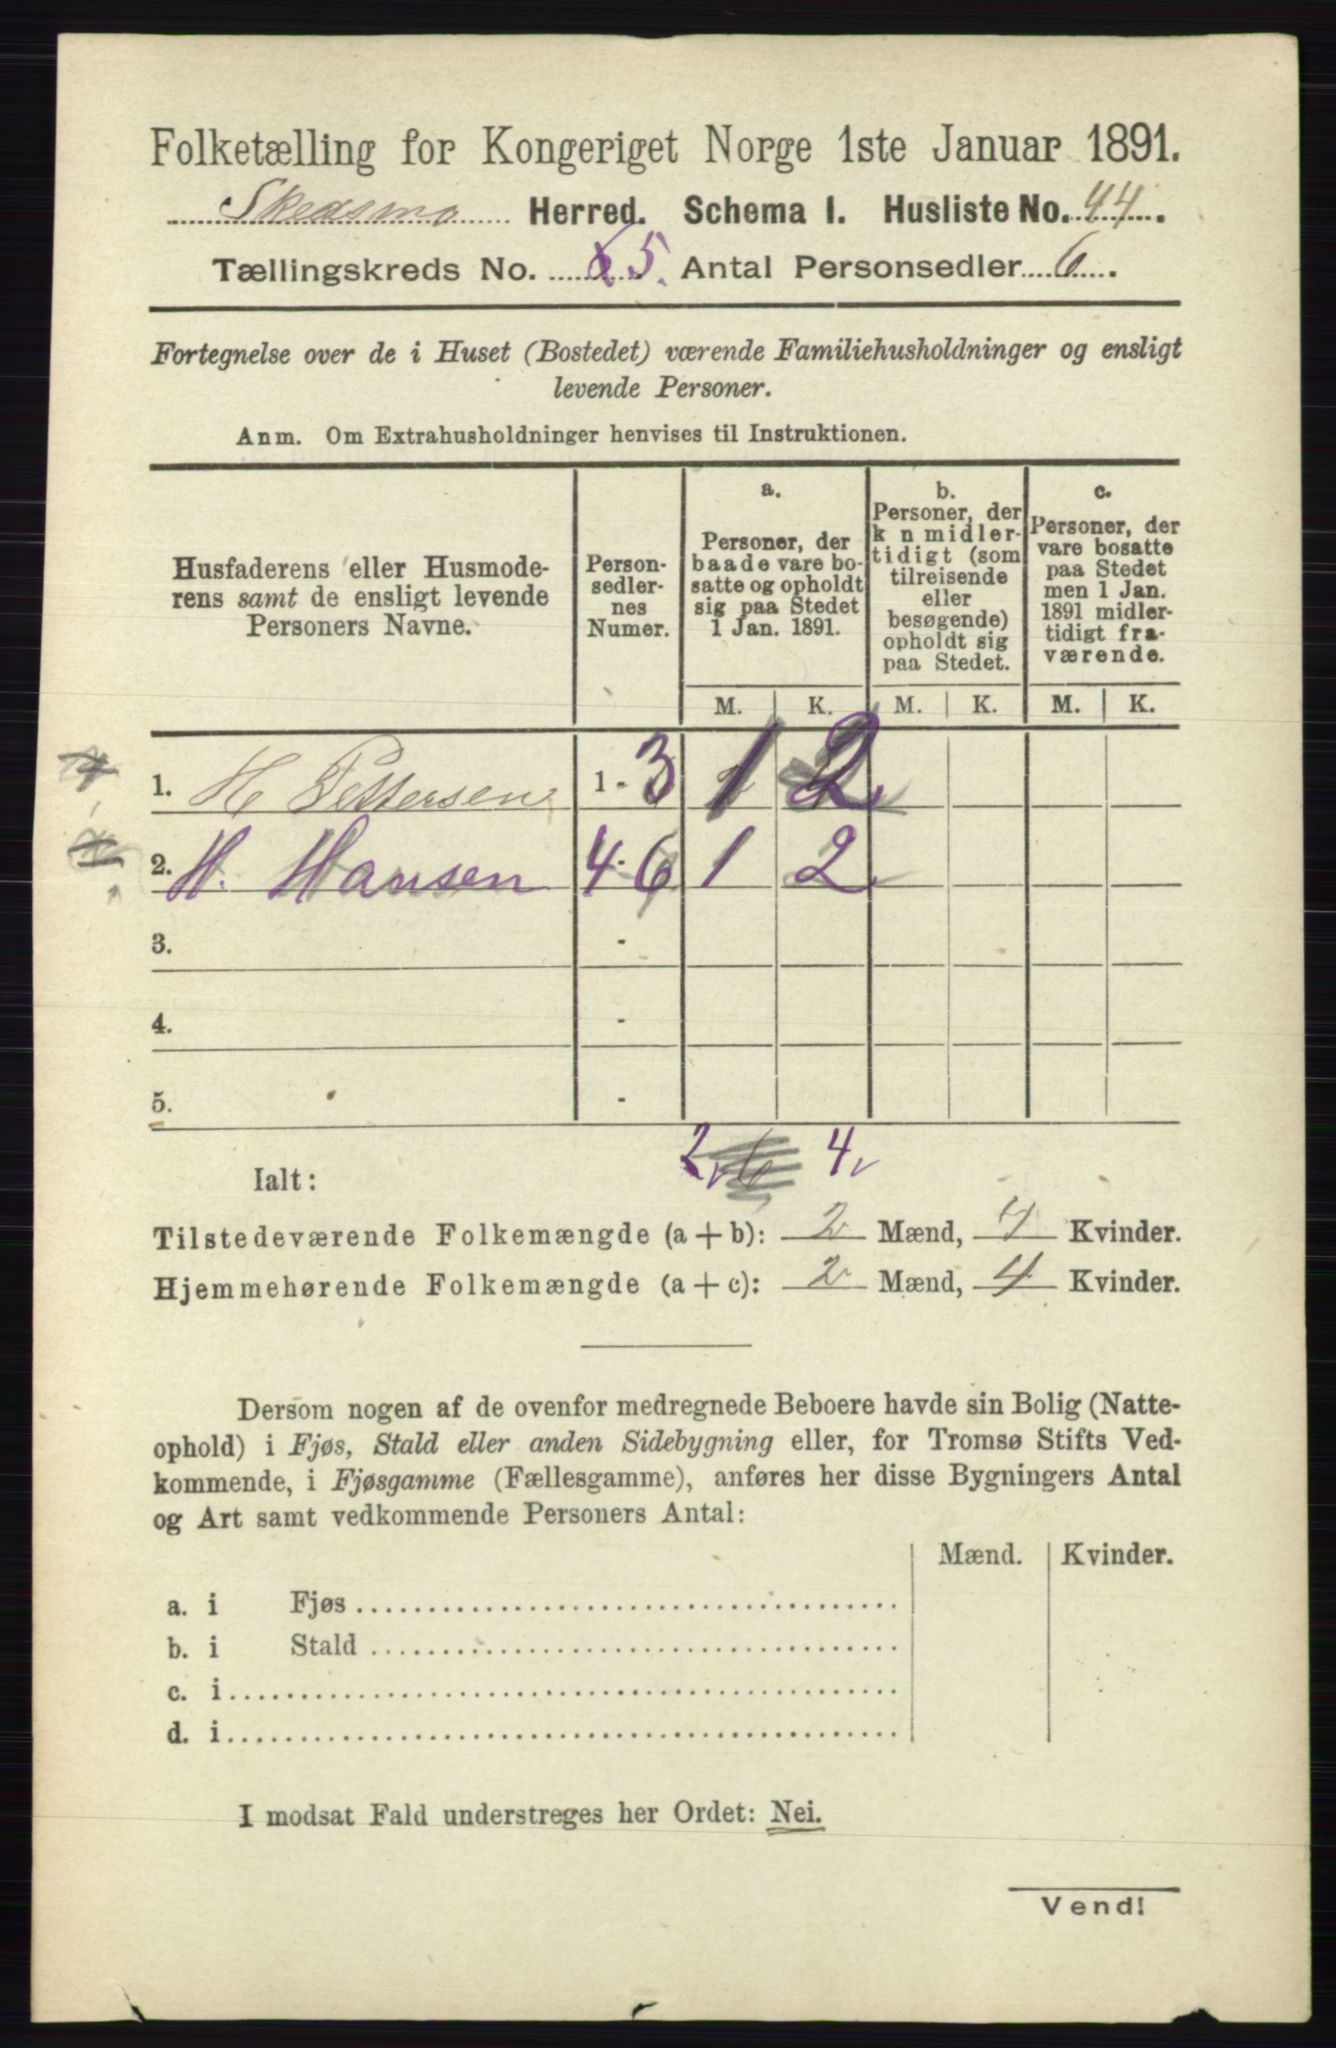 Folketælling for Kongeriget Norge 1ste Januar 1891.
Skedsmo Herred. Schema I. Husliste No. 44.
Tællingskreds No. 5. Antal Personsedler 6.
Fortegnelse over de i Huset (Bostedet) værende Familiehusholdninger og ensligt
levende Personer.
Anm. Om Extrahusholdninger henvises til Instruktionen.
Husfaderens eller Husmode-
rens samt de ensligt levende
Personers Navne.
Person-
sedler-
nes
Numer.
a.
Personer, der
baade vare bo-
satte og opholdt
sig paa Stedet
1 Jan. 1891.
b.
Personer, der
k n midler-
tidigt (som
tilreisende
eller
besøgende)
opholdt sig
paa Stedet.
c.
Personer, der
vare bosatte
paa Stedet
men 1 Jan.
1891 midler-
tidigt fra-
værende.
M. K. M. K. M. K.
1. H Pettersen 1 - 3 1 2
2. H. Hansen 4 - 6 1 2
3. -
4. -
5. -
2 4
Ialt:
Tilstedeværende Folkemængde (a + b): 2 Mænd, 4 Kvinder.
Hjemmehørende Folkemængde (a + c): 2 Mænd, 4 Kvinder.
Dersom nogen af de ovenfor medregnede Beboere havde sin Bolig (Natte-
ophold) i Fjøs, Stald eller anden Sidebygning eller, for Tromsø Stifts Ved-
kommende, i Fjøsgamme (Fællesgamme), anføres her disse Bygningers Antal
og Art samt vedkommende Personers Antal:
Mænd. Kvinder.
a. i Fjøs
b. i Stald
c. i
d. i
I modsat Fald understreges her Ordet: Nei.
Vend!